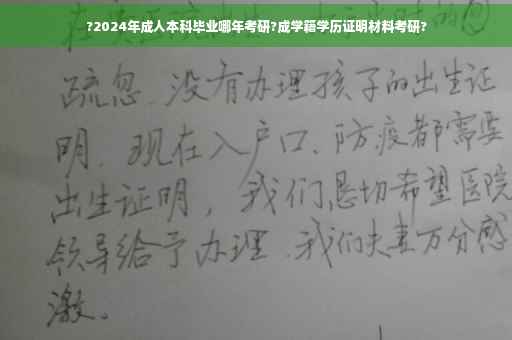 ?2024年成人本科毕业哪年考研?成学籍学历证明材料考研?
疏忽、没有办理孩子的出生证
明、现在入户口、防疫都需要
出生证明，我们恳切希望医院
领导给予办理、我们夫妻万分感
激。